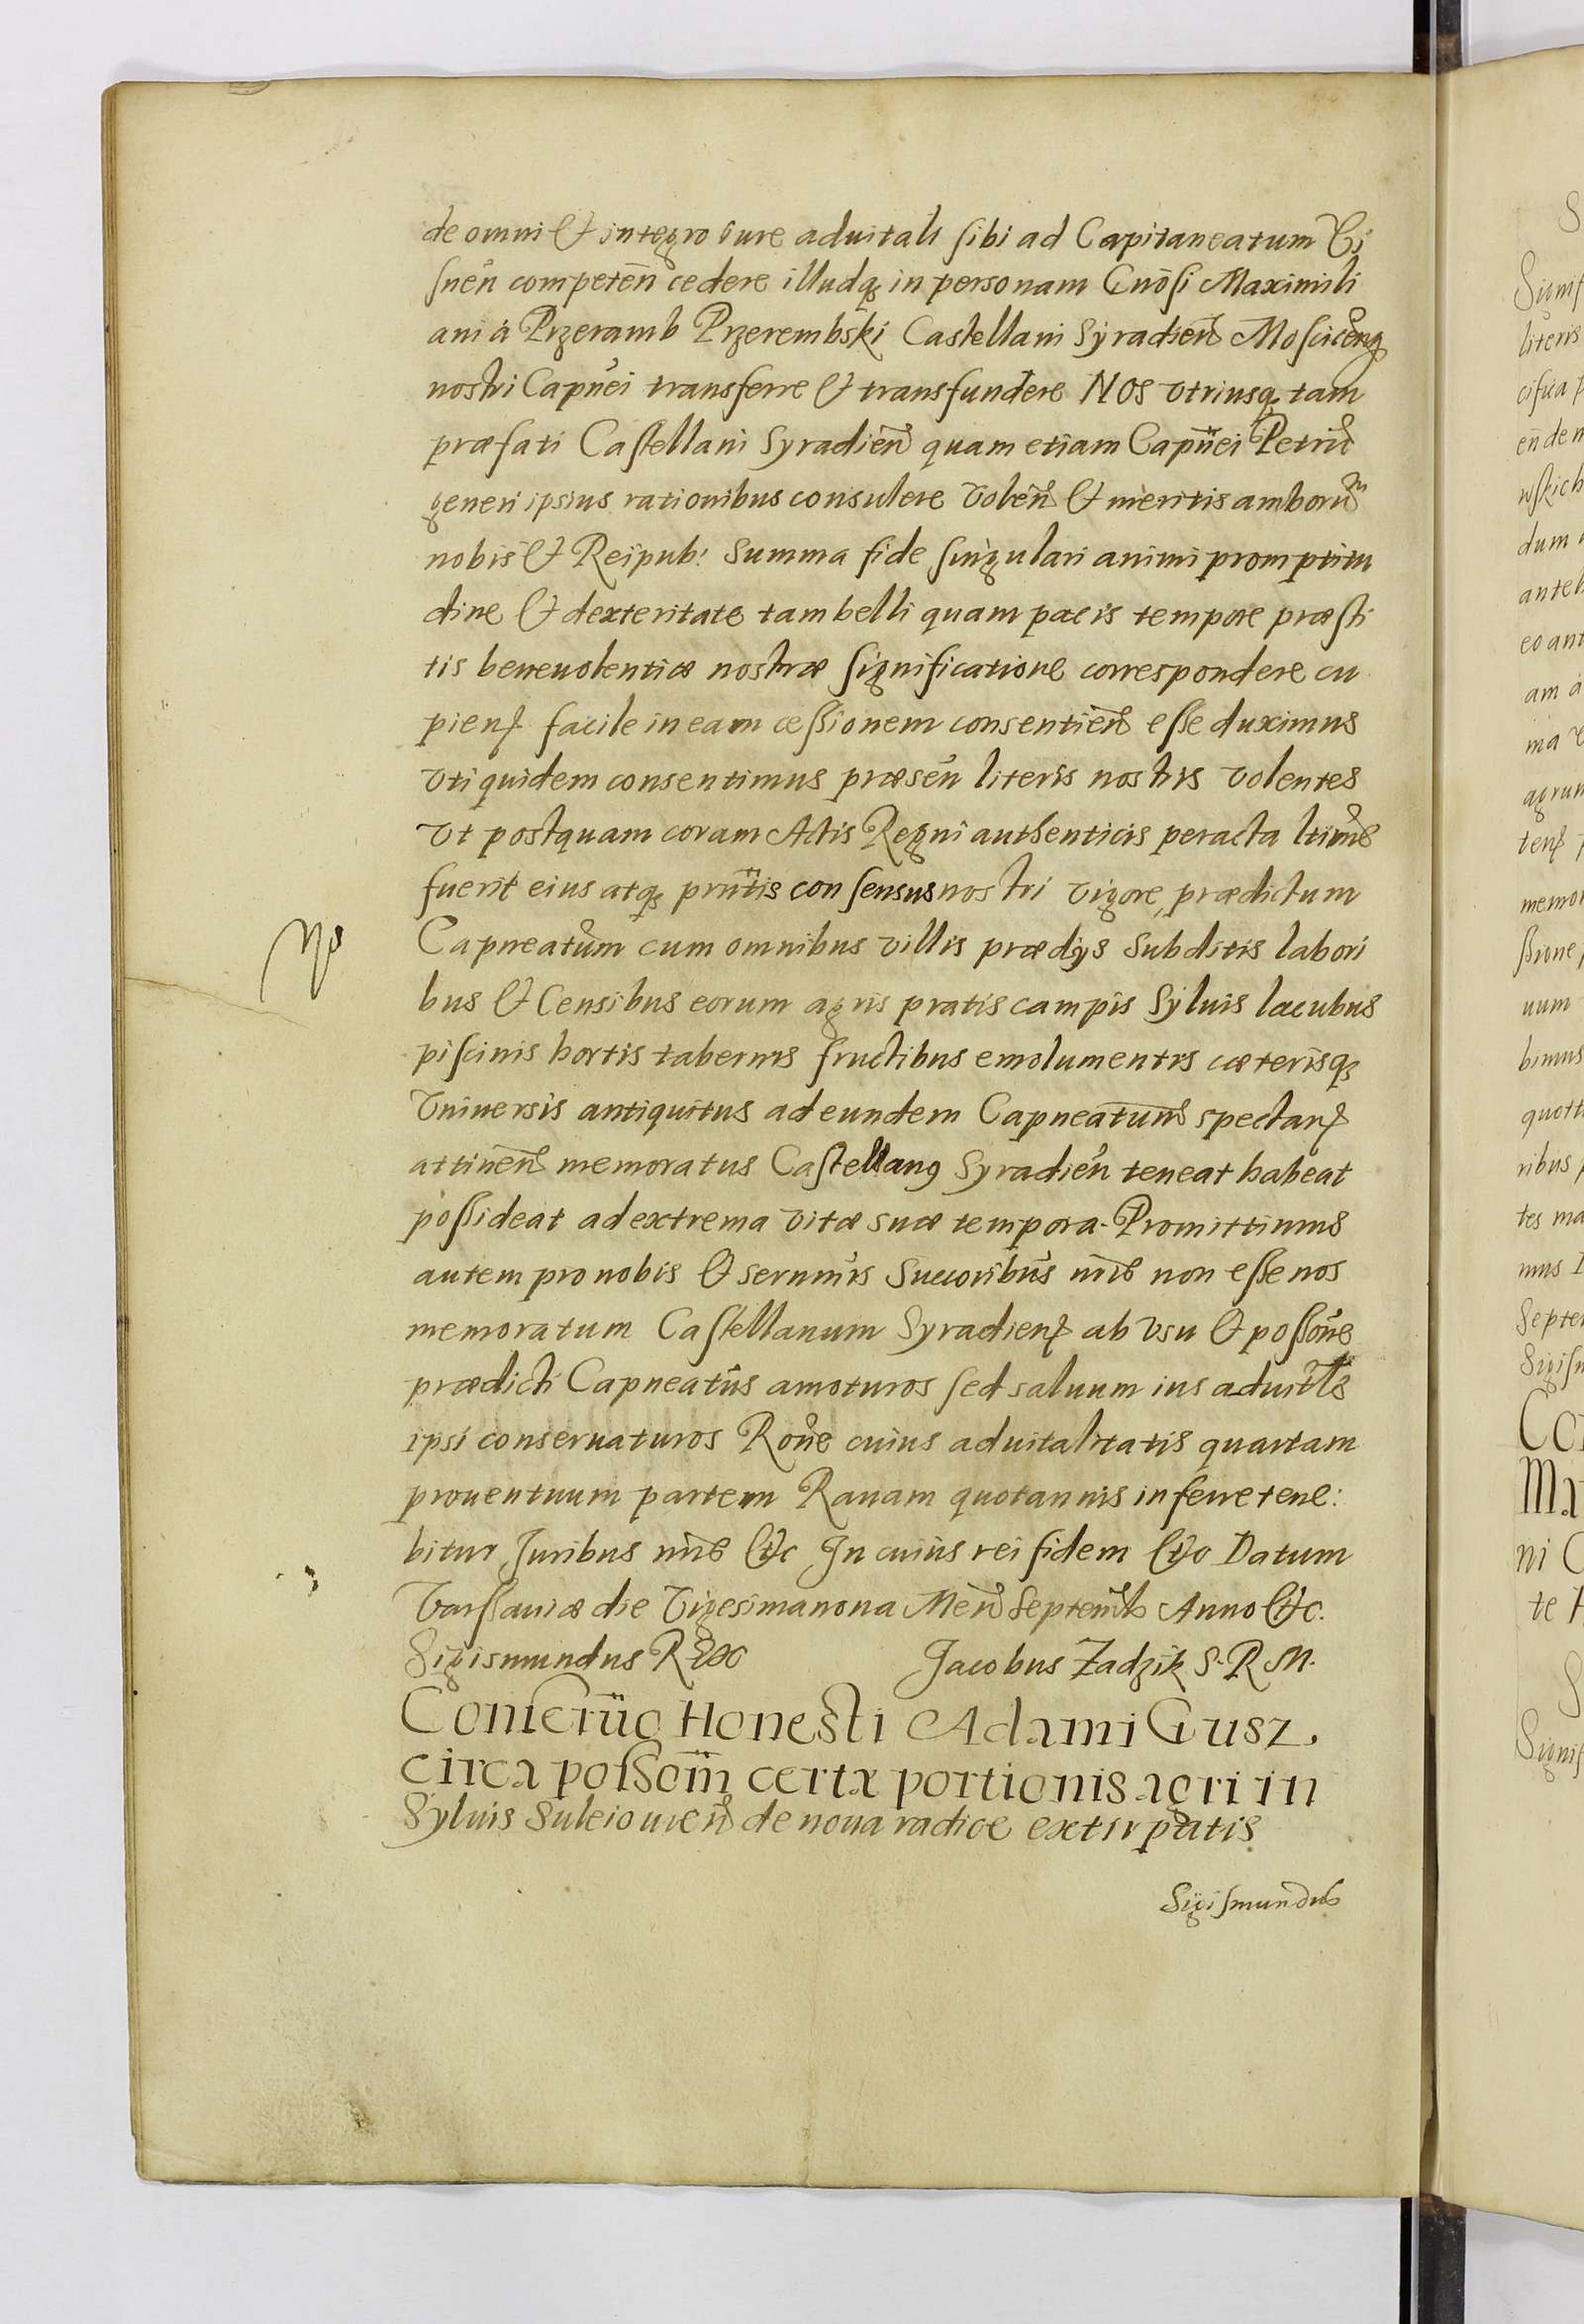 de omni & integro iure aduitali sibi ad Capitaneatum Vi
snen̄ competen̄ cedere illudq₃ in personam Gnōsi Maximili
ani à Przeramb Przerembski Castellani Syradien̄ Moscicenq₃
nostri Capnei transferre & transfundere Nos vtriusq₃ tam
præfati Castellani Syradien̄ quam etiam Capnei Petric̄
generi ipsius rationibus consulere volen̄ & meritis amborum
nobis & Reipub: summa fide singulari animi promptitu
dine & dexteritate tam belli quam pacis tempore præsti
tis beneuolentiæ nostræ significatione correspondere cu
pien facile in eam cessionem consentien̄ esse duximus
vti quidem consentimus præsen̄ literis nostris volentes
vt postquam coram Actis Regni authenticis peracta ltime
fuerit eius atq₃ prn̄tis consensus nostri vigore, prædictum
Capneatum cum omnibus villis prædijs subditis labori
bus & Censibus eorum agris pratis campis syluis lacubus
piscinis hortis tabernis fructibus emolumentis cæterisq₃
vniuersis antiquitus ad eundem Capneatum spectan
attinen̄ memoratus Castellan9 Syradien̄ teneat habeat
possideat ad extrema vitæ suæ tempora. Promittimus
autem pro nobis & sernmis Succoribus nris non esse nos
memoratum Castellanum Syradien ab vsu & possone
prædicti Capneatus amoturos sed saluum ius aduitle
ipsi conseruaturos Rone cuius aduitalitatis quartam
prouentuum partem Rauam quotannis inferre tene:
bitur Juribus nris &c In cuius rei fidem &c Datum
Varssauiæ die Vigesimanona Men̄ Septembr Anno &c.
Sigismundus Rex Jacobus Zadzik S. R M.
Conseruo Honesti Adami Gusz.
circa possom certæ portionis agri in
Syluis Suleiouien̄ de noua radice extirpatis
Sigismundus